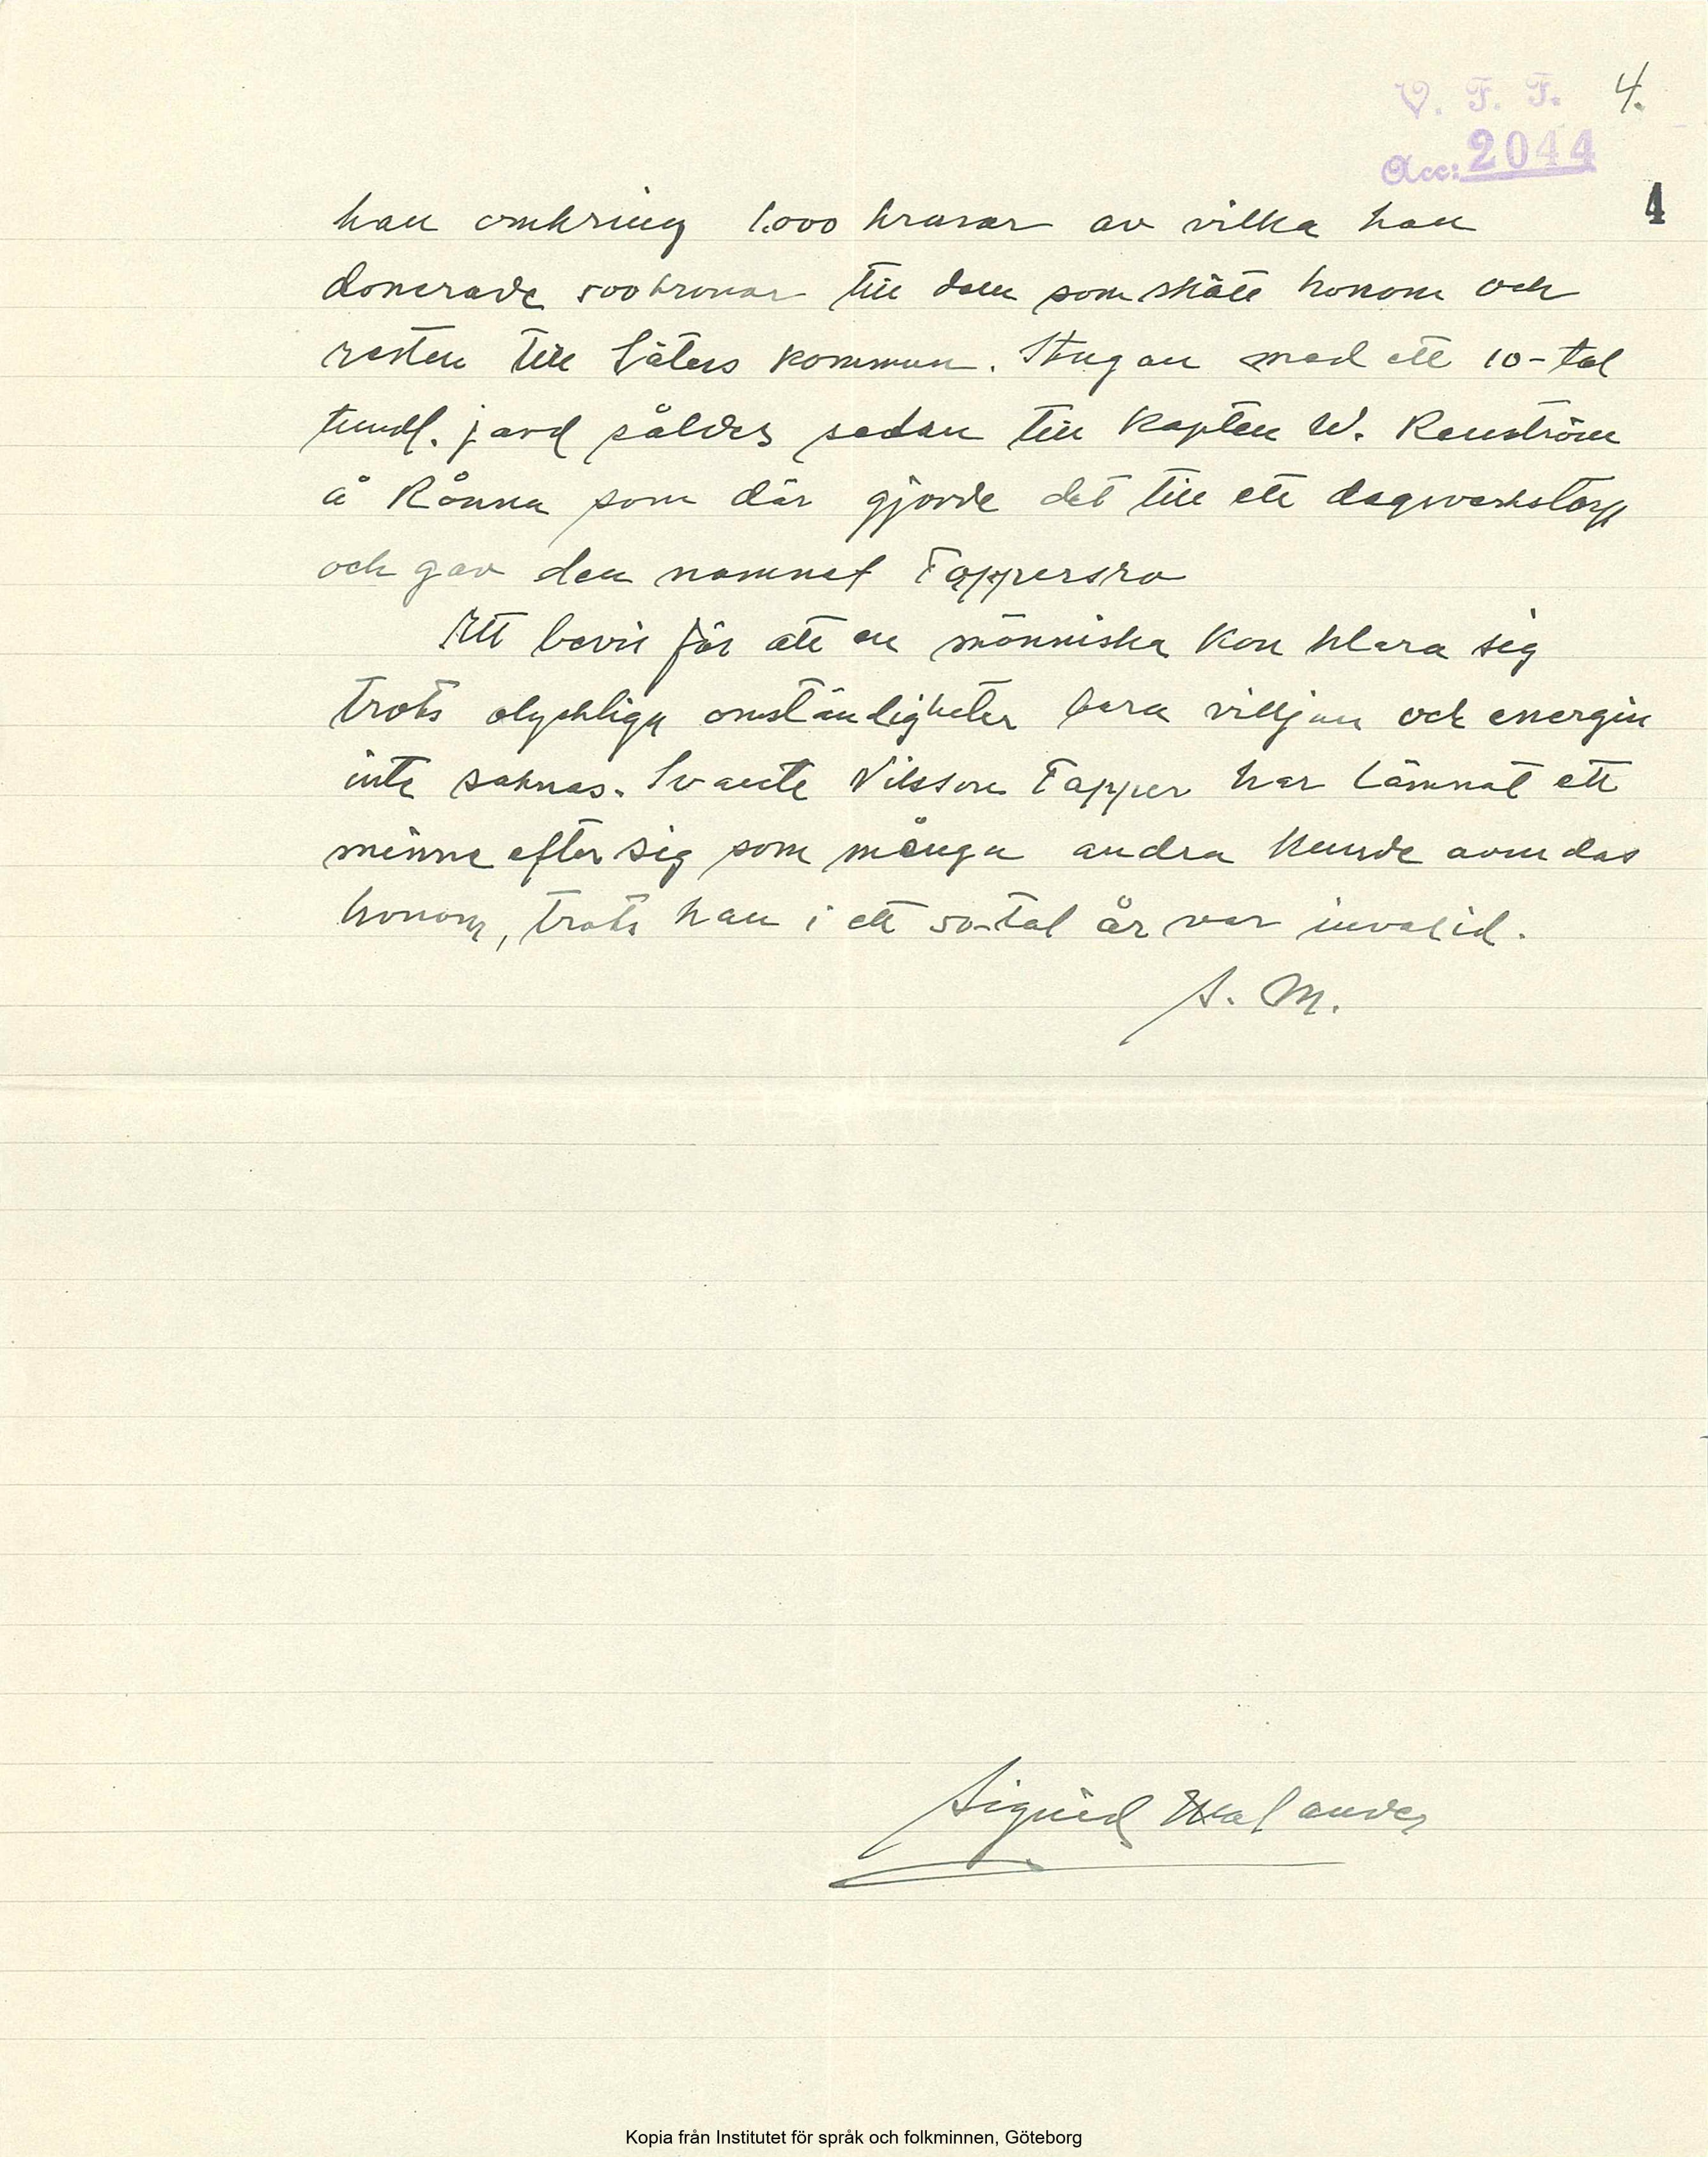 V. F. F. 4.
Acc: 2044
4
han omkring 1.000 kronor av vilka han
donerade 500 kronor till dem som skött honom och
resten till Säters kommun. Stugan med ett 10-tal
tundl. jord såldes sedan till kapten W. Renström
å Rånna som där gjorde det till ett dagsverkstorp
och gav den namnet Tappersro
Ett bevis för att en människa kan klara sig
trots olyckliga omständigheter bara viljan och energin
inte saknas. Svante Nilsson Tapper har lämnat ett
minne efter sig som många andra kunde avundas
honom, trots han i ett 50-tal år var invalid.
S. M.
Sigurd Malander
Kopia från Institutet för språk och folkminnen, Göteborg